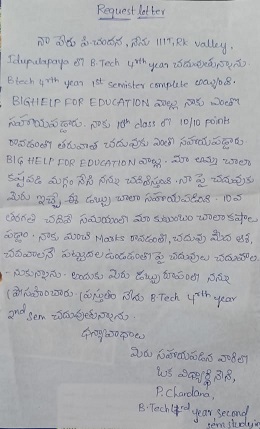 Request letter
నా పేరు పి.చందన, నేను IIIT, RK valley,
Idupulapaya లో B.Tech 4rth year చదువుతున్నాను.
B.tech 4rth year 1st semister complete అయ్యింది.
BIG HELP FOR EDUCATION వాళ్ళు నాకు ఎంతో
సహాయపడ్డారు. నాకు 10th class లో 10/10 points
రావడంతో తరువాత చదువుకు ఎంతో సహాయపడ్డారు
BIG HELP FOR EDUCATION వాళ్ళు. మా అమ్మ చాలా
కష్టపడి మగ్గం నేసి నన్ను చదివిస్తుంది. నా పై చదువుకు
మీరు ఇచ్చే ఈ డబ్బు చాలా సహాయపడింది. 10వ
తరగతి చదివే సమయంలో మా కుటుంబం చాలా కష్టాలు
పడ్డాం. నాకు మంచి Marks రావడంతో, చదువు మీద ఆశ,
చదవాలనే పట్టుదల ఉండడంతో పై చదువులు చదువాల
నుకున్నాను. అందుకు మీరు డబ్బు రూపంలో నన్ను
ప్రోత్సహించారు. ప్రస్తుతం నేను B.Tech 4rth year
2nd sem చదువుతున్నాను.
ధన్యవాదాలు
మీరు సహాయపడిన వారిలో
ఒక విద్యార్థి నేనే,
P. Chandana,
B.Tech 4rd year second
sem studying